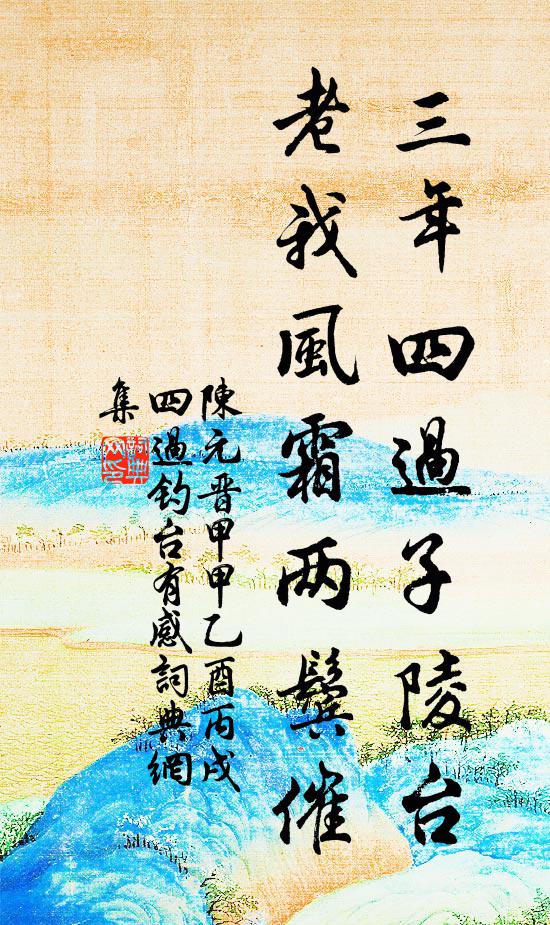 三年四過子陵台
老我風霜两鬓催
陳元晋甲甲乙酉丙戌
四過钓台有感詞典網
集